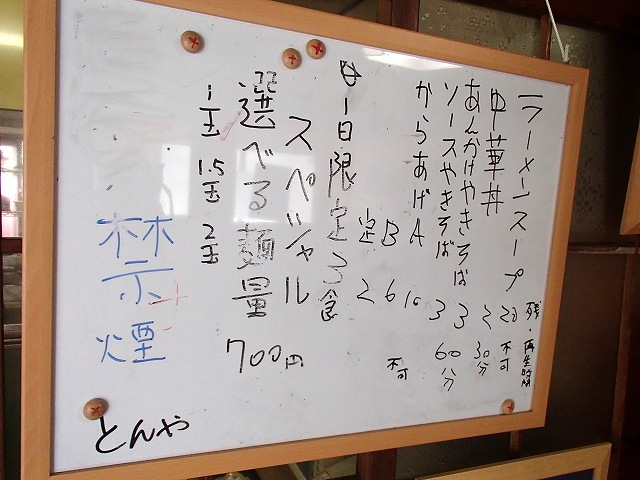 残・再生時間
ラーメンスープ 20 不可
中華丼 2 30分
あんかけやきそば 3
ソースやきそば 3 60分
からあげA 10
B 6 不可
定 2
1日限定3食
スペシャル
選べる麺量 700円
1玉 1.5玉 2玉
禁煙
とんや